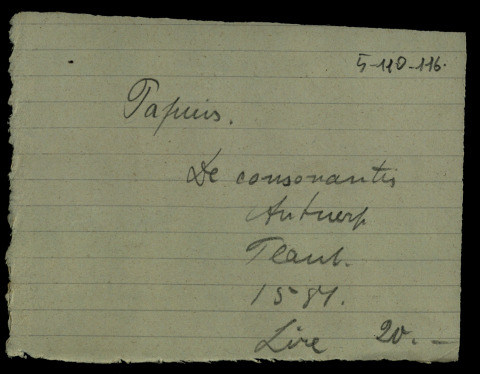 5-110-116.
Papius.
De consonantis
Antwerp
Plant.
1581.
Lire 20.-